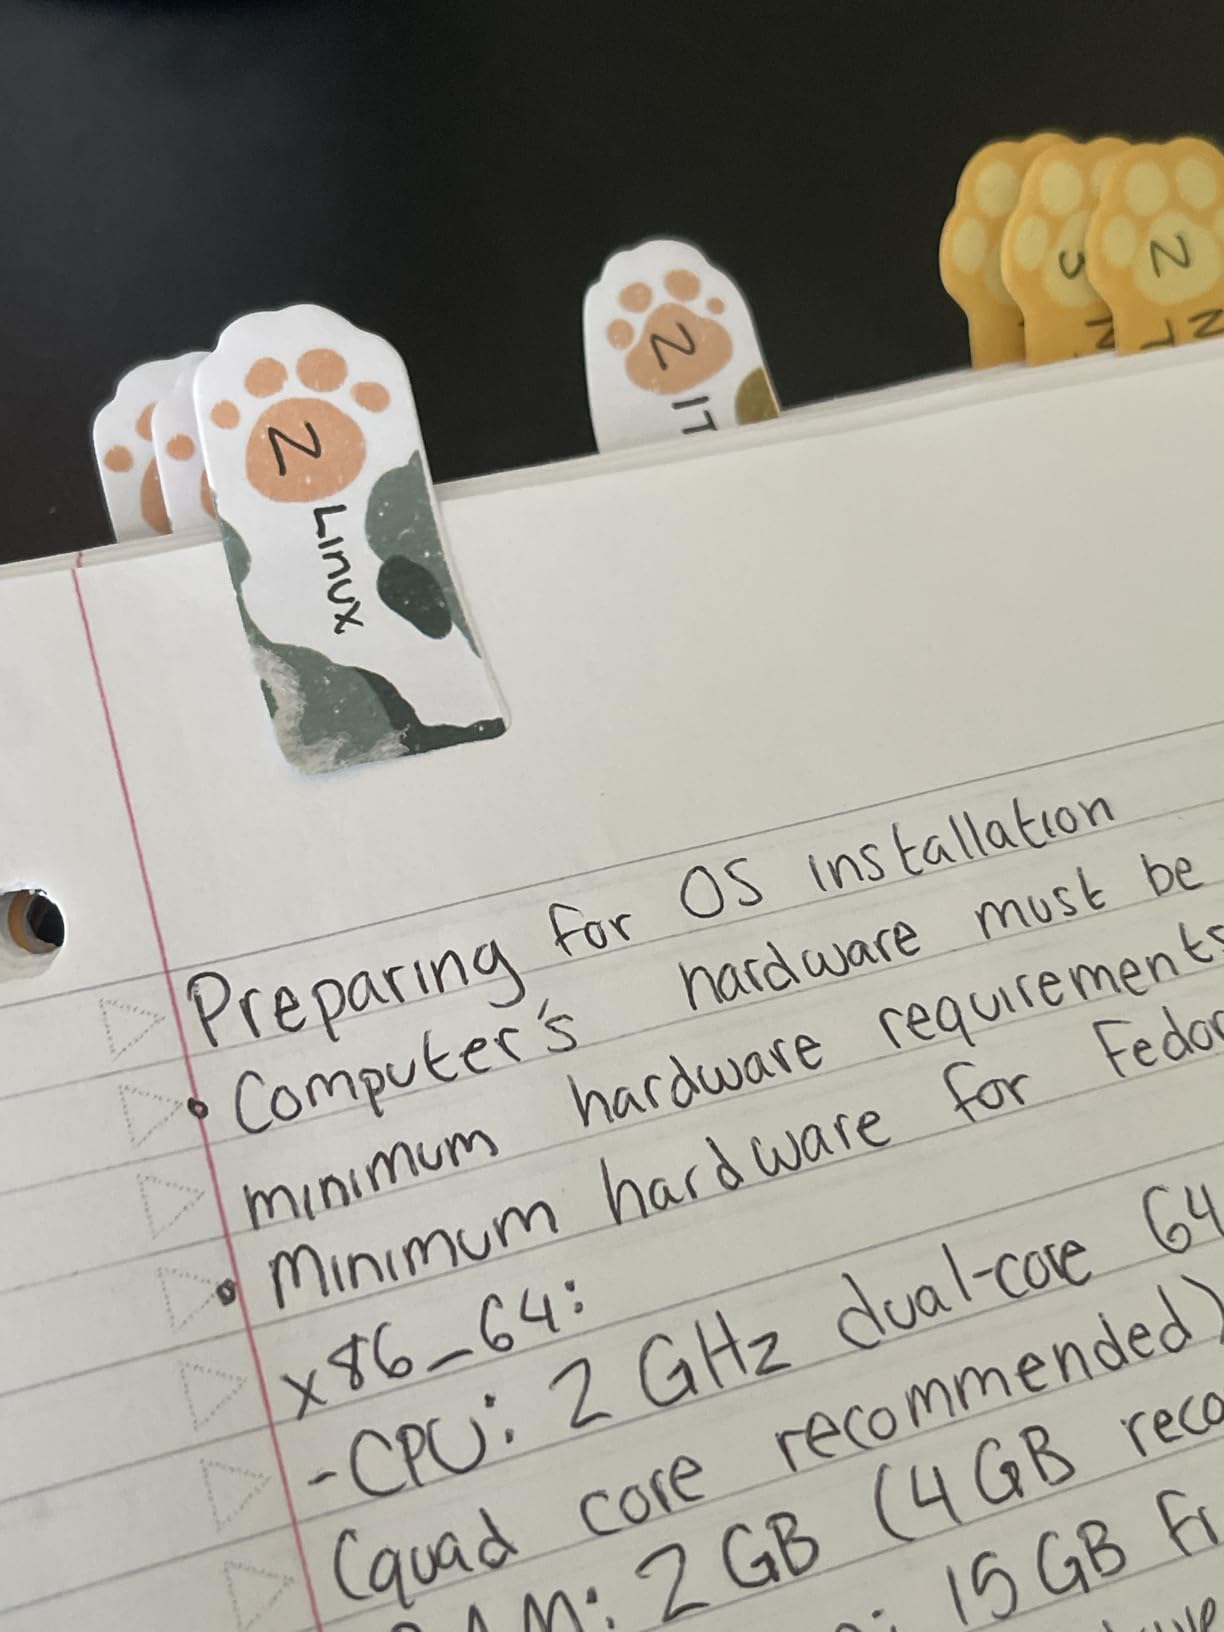 2
Linux
2
IT
2
Preparing for OS installation
• Computer's hardware must be
minimum hardware requirements
• Minimum hardware for
x86_64:
-CPU: 2 GHz dual-core 64
(quad core recommended)
2 GB (4 GB
15 GB